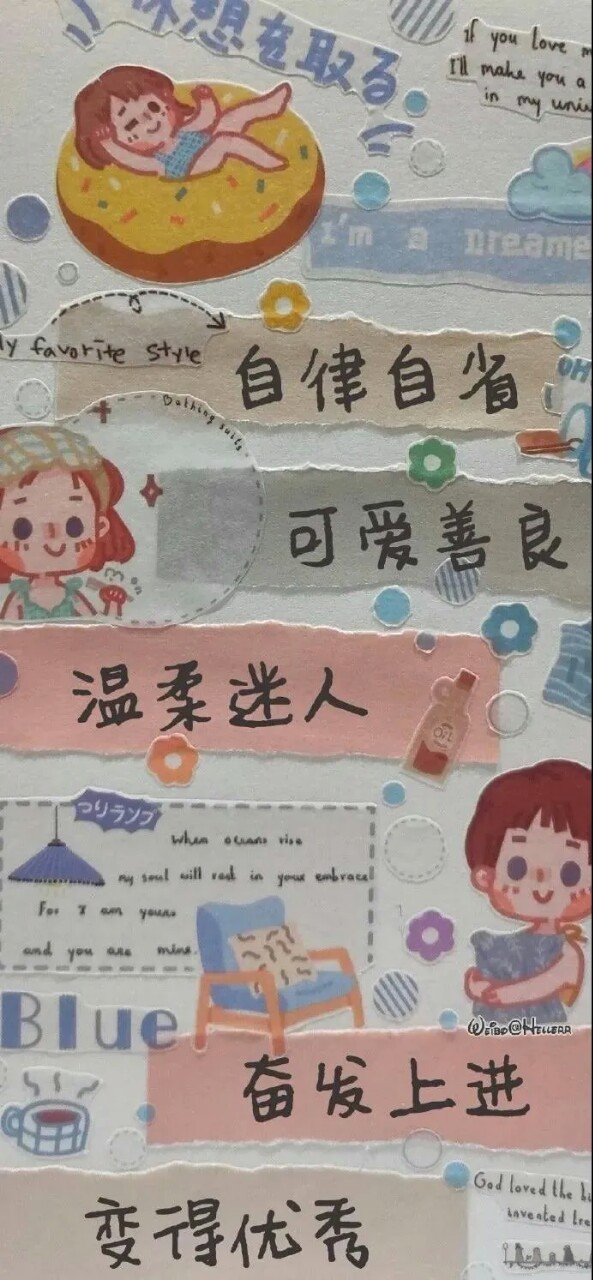 想を取る
If you love m
I'll make you a
in my univ
I'm a Dreame
My favorite style
自律自省
Bathing suits
可爱善良
温柔迷人
OIL
つりランプ
When oceans rise
my soul will rest in your embrace
For I am yours
and you are mine.
Blue
WEIBO@HELLERR
奋发上进
God loved the bi
invented tre
变得优秀